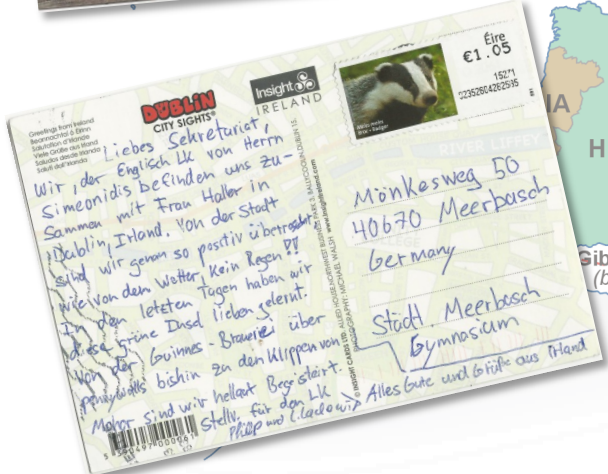 Greetings from Ireland
Beannachtaí ó Éirinn
Salutation d'Irlande
Viele Grüße aus Irland
Saludos desde Irlanda
Saluti dall'Irlanda
DUBLIN
CITY SIGHTS®
Insight
IRELAND
Éire
€1.05
15271
IA
H
RIVER LIFFEY
Gib
(b
Liebes Sekretariat,
Wir, der Englisch LK von Herrn
Simeonidis befinden uns zu-
sammen mit Frau Haller in
Dublin, Irland. Von der Stadt
sind wir genau so positiv überrascht
wie von dem Wetter, kein Regen!!
In den letzten Tagen haben wir
diese grüne Insel lieben gelernt.
Von der Guinnes-Brauerei über
bishin zu den Klippen von
Moher sind wir hellauf Begeistert.
Stellv. für den LK
Philip und
Alles Gute und Grüße aus Irland
Mönkesweg 50
40670 Meerbusch
Germany
Städt. Meerbusch
Gymnasium
© INSIGHT CARDS LTD, ALLIED HOUSE, NORTHWEST BUSINESS PARK 3, BALLYCOOLIN, DUBLIN 15.
PHOTOGRAPHY: MICHAEL WALSH www.insightireland.com